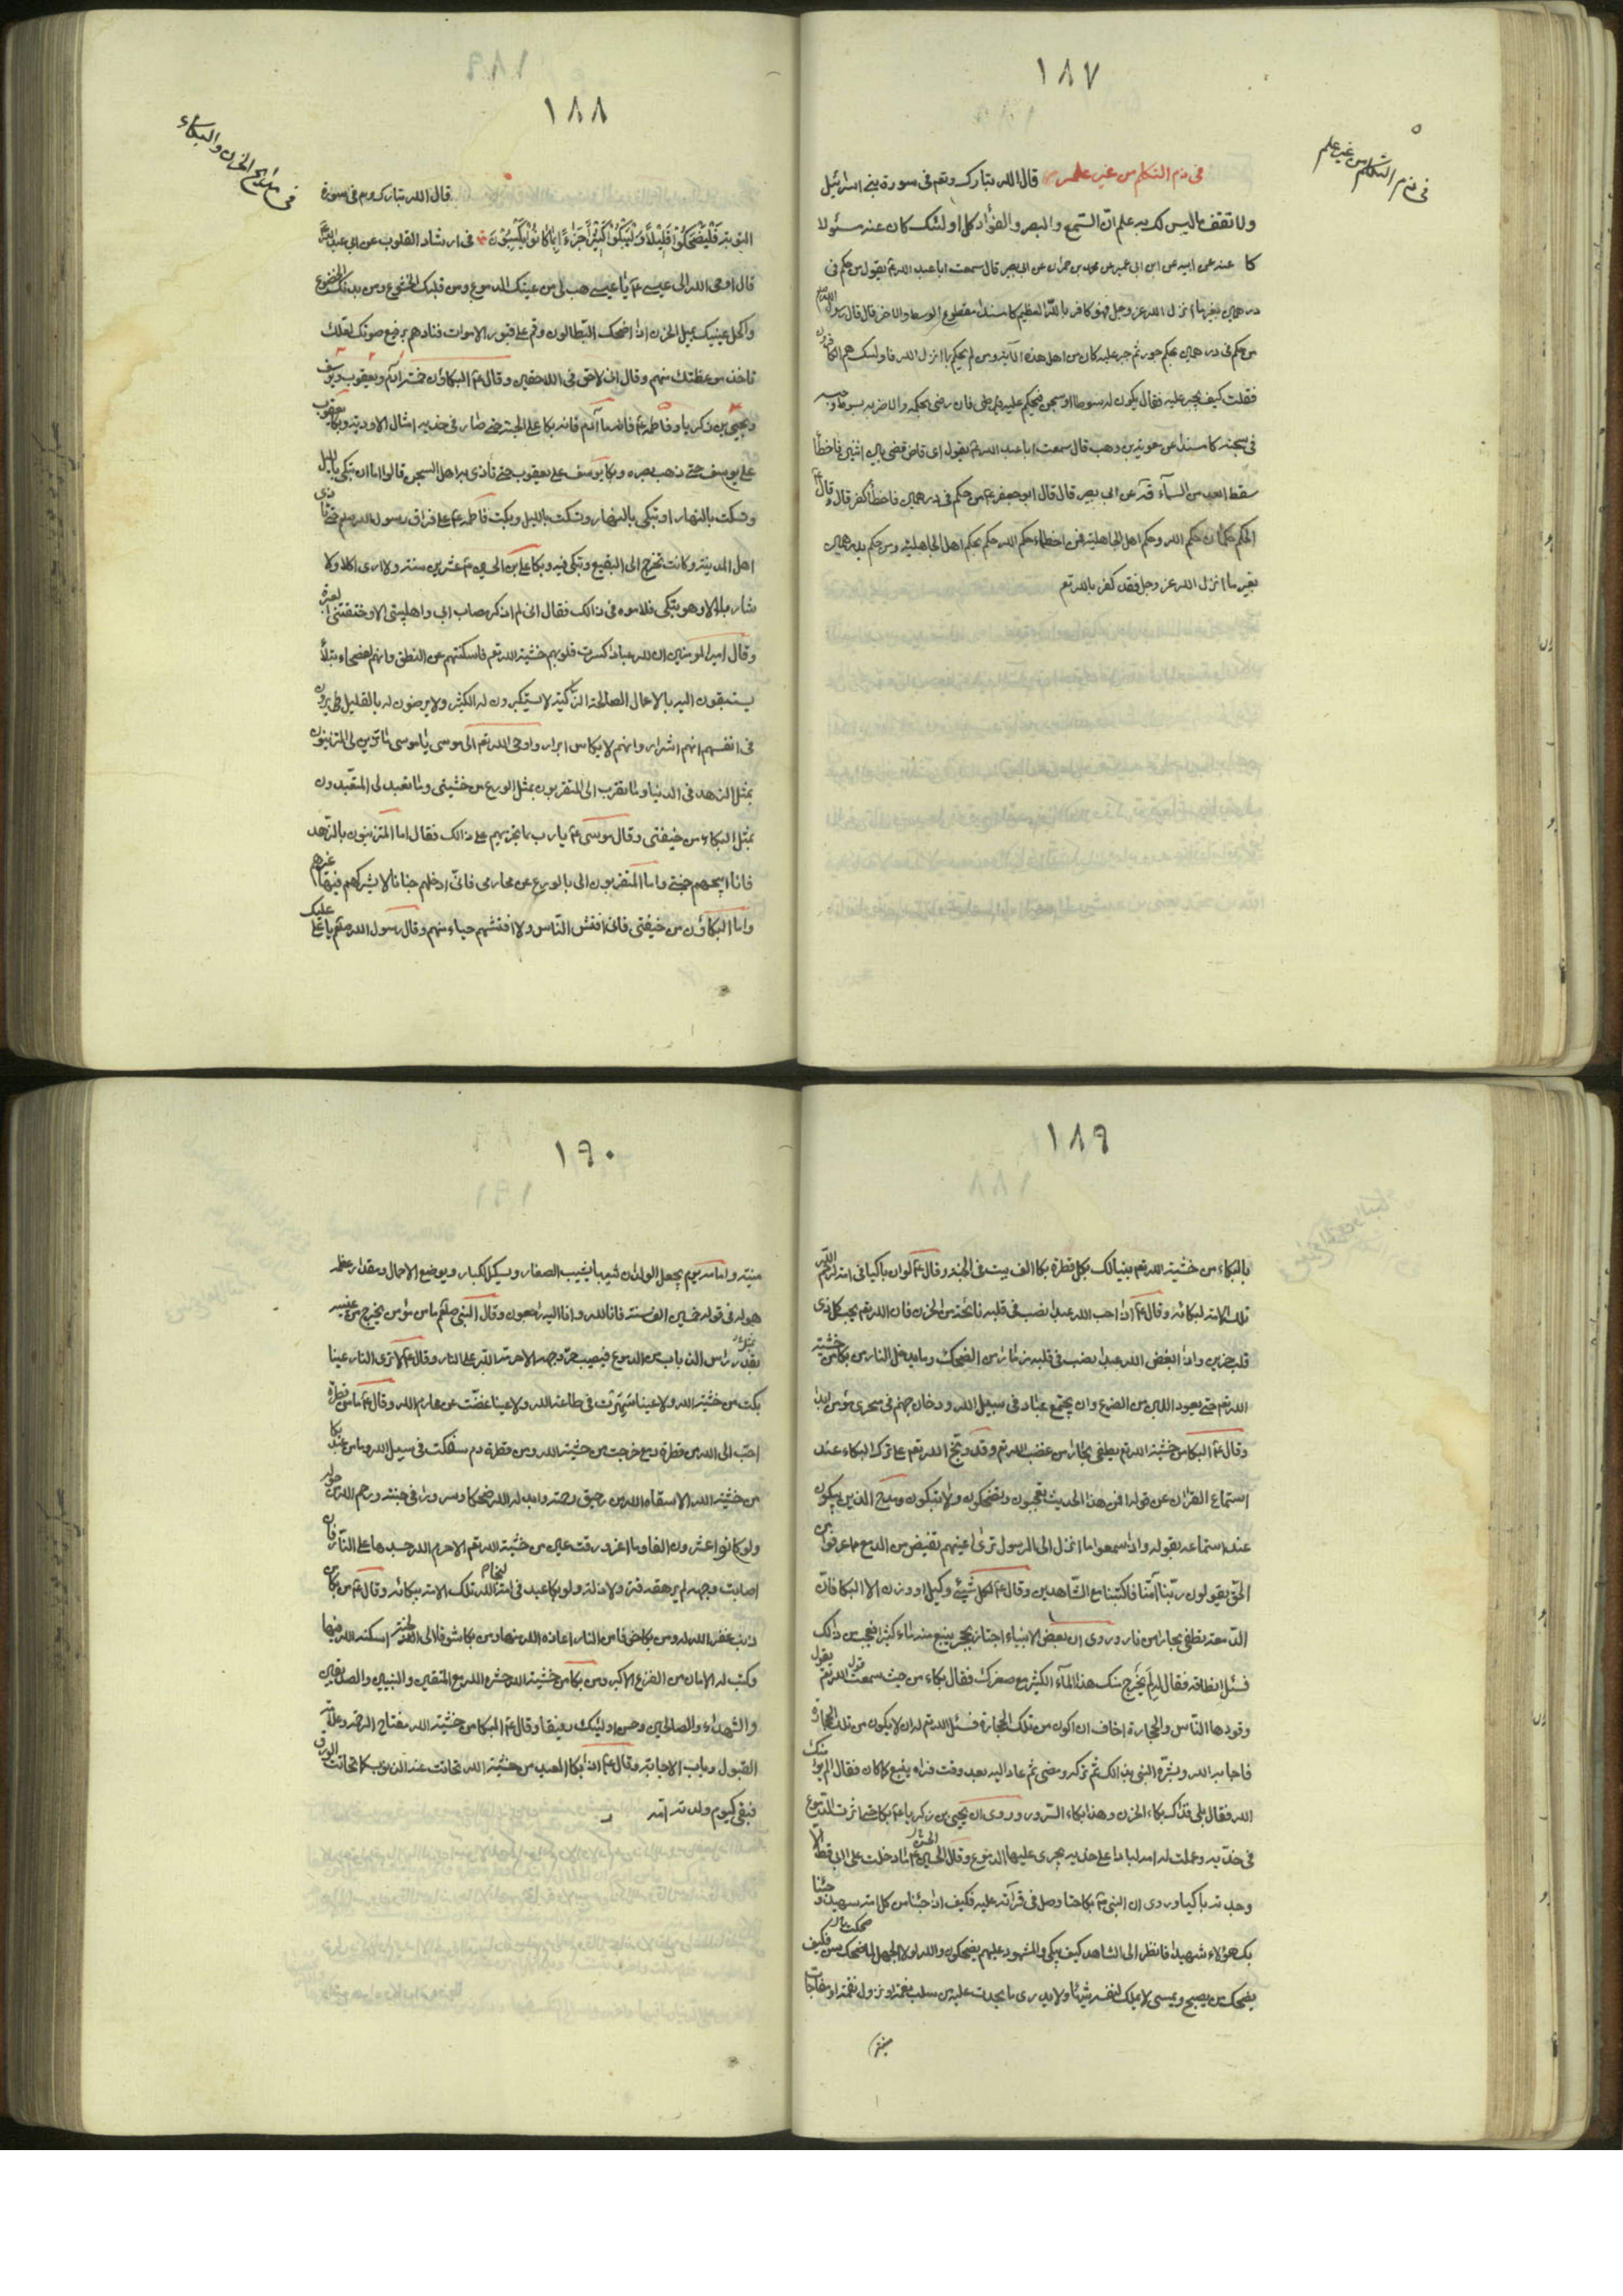 ١٨٧
فى ذم التكلم من غير علم
فى ذم التكلم من غير علم قال الله تبارك وتعم فى سورة بنى اسرائيل
ولا تقف ما ليس لك به علم انّ السّمع والبصر والفؤاد كل اولئك كان عنه مسئولا
كا عنه عن ابيه عن ابن ابى عمير عن محمد بن حمران عن ابى بصير قال سمعت ابا عبد الله ع يقول من حكم فى
درهمين بغير ما انزل الله عز وجل فهو كافر بالله العظيم كا مسندا مقطوع الوسط والاخر قال قال رسول الله
من حكم فى درهمين بحكم جور ثم جبر عليه كان من اهل هذه الآية ومن لم يحكم بما انزل الله فاولئك هم الكافرون
فقلت كيف يجبر عليه فقال يكون له سوط او سجن فيحكم عليه فان رضى بحكمه والا ضربه بسوطه وحبسه
فى سجنه كا مسندا عن معوية بن وهب قال سمعت ابا عبد الله ع يقول اى قاض قضى بين اثنين فاخطأ
سقط ابعد من السمآء عن ابى بصير قال قال ابو جعفر ع من حكم فى درهمين فاخطأ كفر قال وقال
الحكم حكمان حكم الله وحكم اهل الجاهلية فمن اخطاء حكم الله حكم بحكم اهل الجاهلية ومن حكم بدرهمين
بغير ما انزل الله عز وجل فقد كفر بالله تعم
١٨٨
فى مدايح الحزن والبكاء
قال الله تبارك وتعم فى سورة
التوبة فَلْيَضْحَكُوْا قَلِيْلاً وَلْيَبْكُوْا كَثِيْراً جَزَاءً بِمَا كَانُوْا يَكْسِبُوْنَ فى ارشاد القلوب عن ابى عبد الله
قال اوحى الله الى عيسى ع يا عيسى هب لى من عينك الدموع ومن قلبك الخشوع ومن بدنك الخضوع
واكحل عينيك بميل الحزن اذا اضحك البطالون وقم على قبور الاموات فنادهم برفع صوتك لعلك
تاخذ موعظتك منهم وقال انى لاحق فى اللاحقين وقال ع البكاؤن خمسة آدم ويعقوب ويوسف
ويحيى بن زكريا وفاطمة ع فاما آدم فانه بكا على الجنة حتى صار فى خديه امثال الاودية وبكا يعقوب
على يوسف حتى ذهب بصره وبكا يوسف على يعقوب حتى تأذى به اهل السجن قالوا اما ان تبكى بالليل
وتسكت بالنهار او تبكى بالنهار وتسكت بالليل وبكت فاطمة ع على فراق رسول الله صلعم حتى تأذى
اهل المدينة وكانت تخرج الى البقيع وتبكى فيه وبكا على بن الحسين ع عشرين سنة ولا ارى اكلا ولا
شاربا الا وهو يبكى فلاموه فى ذالك فقال انى لم اذكر مصاب ابى واهلبيتى الا وخنقتنى العبرة
وقال امير المومنين ان لله عبادا كسرت قلوبهم خشية الله تعم فاسكتتهم عن النطق وانهم لفصحاء نبلأ
يستبقون اليه بالاعمال الصالحة الزّاكية لا يستكبرون له الكثير ولا يرضون له بالقليل يرون
فى انفسهم انهم اشرار وانهم لاكياس ابرار واوحى الله تعم الى موسى يا موسى ما تزين لى المتزينون
بمثل الزهد فى الدنيا وما تقرب الى المتقربون بمثل الورع من خشيتى وما تعبد لى المتعبدون
بمثل البكاء من خيفتى وقال موسى ع يا رب ما تجزيهم على ذالك فقال اما المتزينون بالزهد
فانا ابيحهم جنتى واما المتقربون الى بالورع عن محارمى فانى ادخلهم جنانا لا يشركهم فيها غيرهم
واما البكاؤن من خيفتى فانى افتش النّاس ولا افتشهم حياء منهم وقال رسول الله صلعم يا على عليك
١٨٩
بالبكاء من خشية الله تعم يبنى لك بكل قطرة بكا الف بيت فى الجنة وقال ع لو ان باكيا فى امة لرحم الله
تلك الامة لبكائه وقال ع اذا احب الله عبدا نصب فى قلبه نائحة من الحزن فان الله تعم يحب كل ذى
قلب حزين واذا ابغض الله عبدا نصب فى قلبه مزمارا من الضحك وما يدخل النار من بكا من خشية
الله تعم حتى يعود اللبن من الضرع وان يجتمع غبار فى سبيل الله ودخان جهنم فى منخرى مؤمن ابدا
وقال ع البكا من خشية الله تعم يطفى بحارا من غضب الله تعم وقد وبّخ الله تعم على ترك البكاء عند
استماع القران عن قوله افمن هذا الحديث تعجبون وتضحكون ولا تبكون ومدح الذين يبكون
عند استماعه بقوله واذا سمعوا ما انزل الى الرسول ترى اعينهم تفيض من الدمع مما عرفوا من
الحق يقولون ربّنا آمنّا فاكتبنا مع الشّاهدين وقال ع لكل شيئ وكيل او وزن الا البكا فان
الدمعة تطفى بحارا من نار وروى ان بعض الانبياء اجتاز بحجر ينبع منه ماء كثير فعجب من ذلك
فسئل انطاقه فقال له لم يخرج منك هذا المآء الكثير مع صغرك فقال بكاء من حيث سمعت قول الله تعم يقول
وقودها النّاس والحجارة اخاف ان اكون من تلك الحجارة فسئل الله تعم له ان لا يكون من تلك الحجارة
فاجابه الله وبشّره النبى بذالك ثم تركه ومضى ثم عاد اليه بعد وقت فراه ينبع كما كان فقال الم يؤمنك
الله فقال بلى فذاك بكاء الحزن وهذا بكاء السرور وروى ان يحيى بن زكريا ع بكا حتى اثرت الدموع
فى خدّيه وعملت له امه لبادا على خديه يجرى عليها الدموع وقال الحسين ع ما دخلت على ابى قط الا
وجدته باكيا وروى ان النبى ع بكا حينما وصل فى قرائة عليه فكيف اذا جئنا من كل امة بشهيد وجئنا
بك على هؤلاء شهيدا فانظر الى الشاهد كيف يبكى والمشهود عليهم يضحكون والله لولا الجهل ما ضحكت سن فكيف
يضحك من يصبح ويمسى لا يملك لنفسه شيئا ولا يدرى ما يحدث عليه من سلب نعمة او نزول نقمة او مفاجات
١٩٠
منيته وامامه يوم يجعل الولدان شيبا يشيب الصغار ويسكر الكبار ويوضع الاحمال ومقدار عظم
هوله فى قوله خمسين الف سنة فانا لله وانا اليه راجعون وقال النبى صلعم ما من مؤمن يخرج من عينيه
مثل راس الذباب من الدموع فيصيب حرّ وجهه الا حرمه الله على النار وقال ع لا ترى النار عينا
بكت من خشية الله ولا عينا سهرت فى طاعة الله ولا عينا غضّت عن محارم الله وقال ع ما من قطرة
احبّ الى الله من قطرة دمع خرجت من خشية الله ومن قطرة دم سفكت فى سبيل الله وما من عبد بكا
من خشية الله الا سقاه الله من رحيق رحمته وابدله الله ضحكا وسرورا فى جنته ورحم الله من حوله
ولو كانوا عشرون الفا وما اغرورقت عين من خشية الله تعم الا حرم الله جسدها على النار فان
اصابت وجهه لم يرهقه قتر ولا ذلة ولو بكا عبد فى امة لنجا الله تلك الامة ببكائه وقال ع من بكا من
ذنب غفر الله له ومن بكا خوفا من النار اعاذه الله منها ومن بكا شوقا الى الجنة اسكنه الله فيها
وكتب له الامان من الفزع الاكبر ومن بكا من خشية الله حشره الله مع المتقين والنبيين والصديقين
والشهداء والصالحين وحسن اولئك رفيقا وقال ع البكا من خشية الله مفتاح الرحمة وعلامة
القبول وباب الاجابة وقال ع اذا بكا العبد من خشية الله تحاتت عنه الذنوب كما تحاتت الورق
فيبقى كيوم ولدته امه